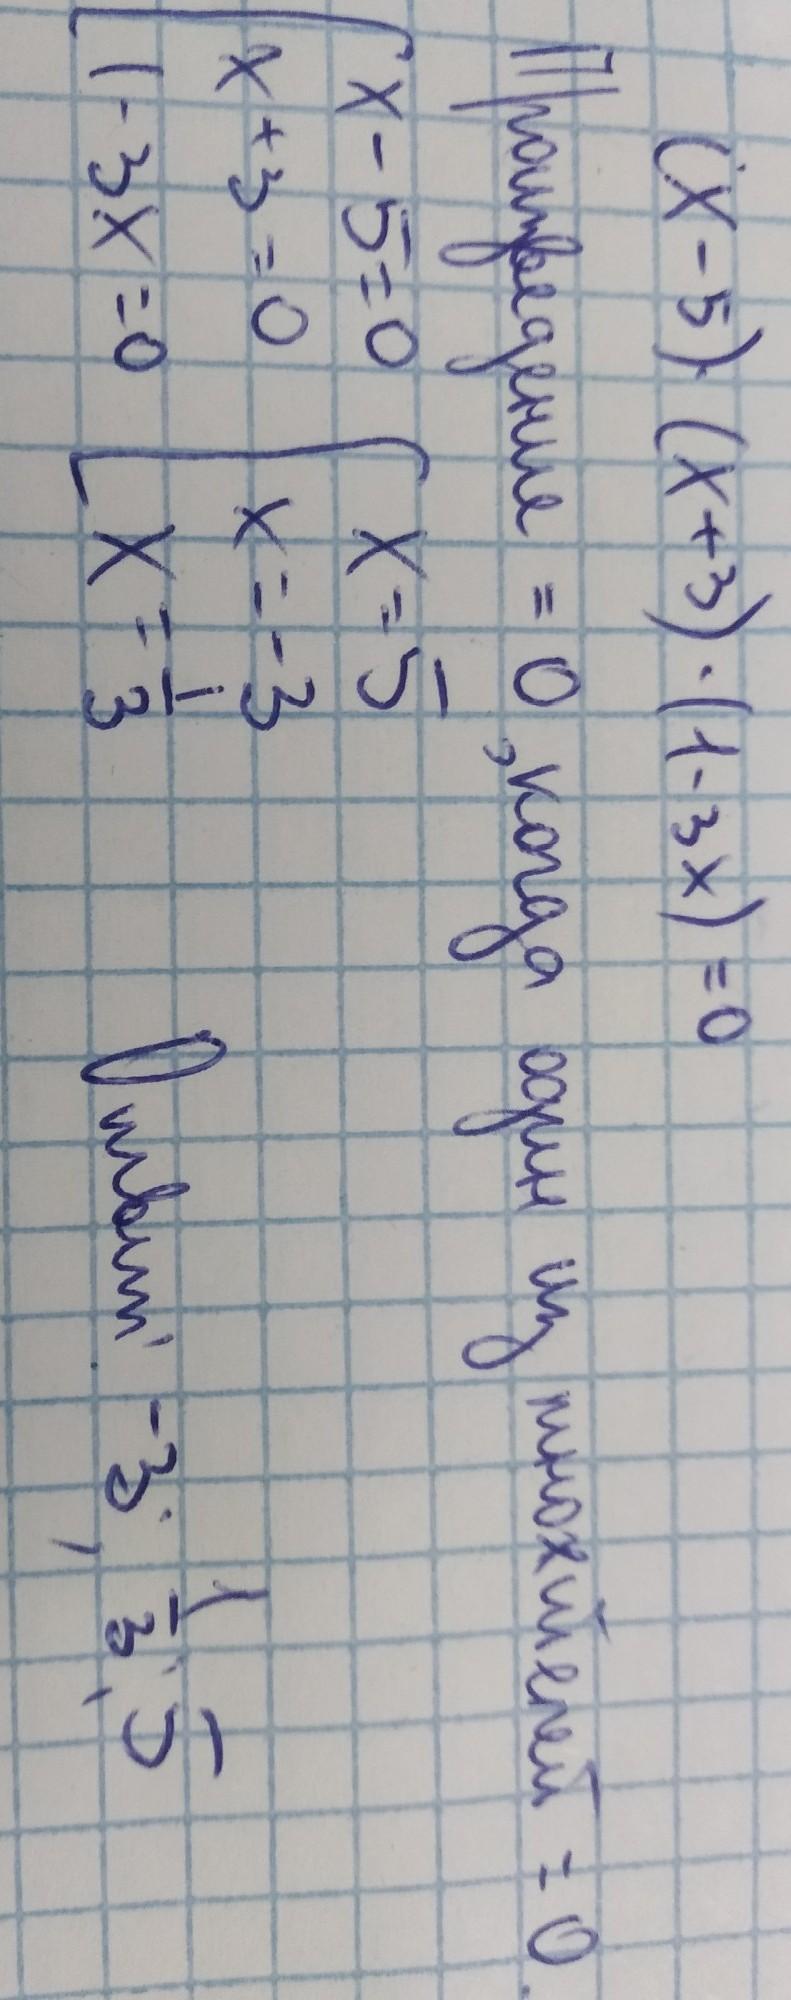 (x-5)·(x+3)·(1-3x)=0
Произведение = 0, когда один из множителей = 0.
x-5=0 x=5
x+3=0 x=-3
1-3x=0 x=1/3 Ответ: -3; 1/3; 5